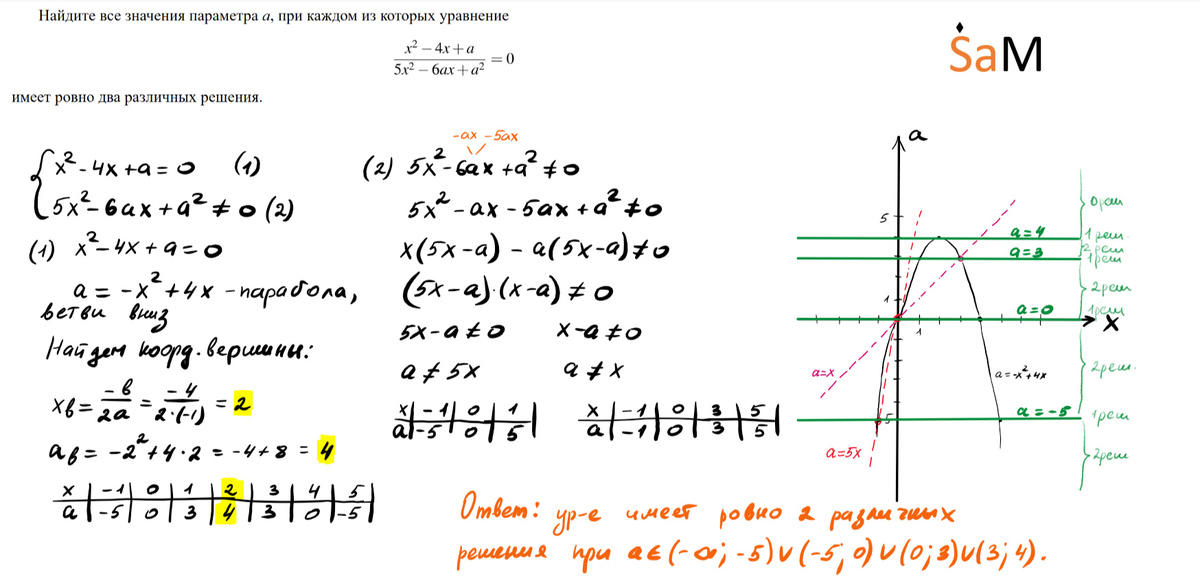 Найдите все значения параметра a, при каждом из которых уравнение
x² – 4x + a
5x² – 6ax + a²
= 0
имеет ровно два различных решения.
ṠaM
{ x² - 4x + a = 0 (1)
5x² - 6ax + a² ≠ 0 (2)
(1) x² - 4x + a = 0
a = -x² + 4x - парабола,
ветви вниз
Найдем коорд. вершины:
xв = -в/2a = -4/2·(-1) = 2
aв = -2² + 4·2 = -4 + 8 = 4
x | -1 | 0 | 1 | 2 | 3 | 4 | 5
a | -5 | 0 | 3 | 4 | 3 | 0 | -5
-ax -5ax
(2) 5x² - 6ax + a² ≠ 0
5x² - ax - 5ax + a² ≠ 0
x(5x - a) - a(5x - a) ≠ 0
(5x - a)·(x - a) ≠ 0
5x - a ≠ 0 x - a ≠ 0
a ≠ 5x a ≠ x
x | -1 | 0 | 1
a | -5 | 0 | 5
x | -1 | 0 | 3 | 5
a | -1 | 0 | 3 | 5
a
5
0 реш
a = 4 1 реш.
2 реш
a = 3 1 реш
2 реш
1
a = 0 1 реш
1
x
a = x
a = -x² + 4x
2 реш.
-5
a = -5 1 реш
a = 5x
2 реш
Ответ: ур-е имеет ровно 2 различных
решения при a ∈ (-∞; -5) ∪ (-5; 0) ∪ (0; 3) ∪ (3; 4).